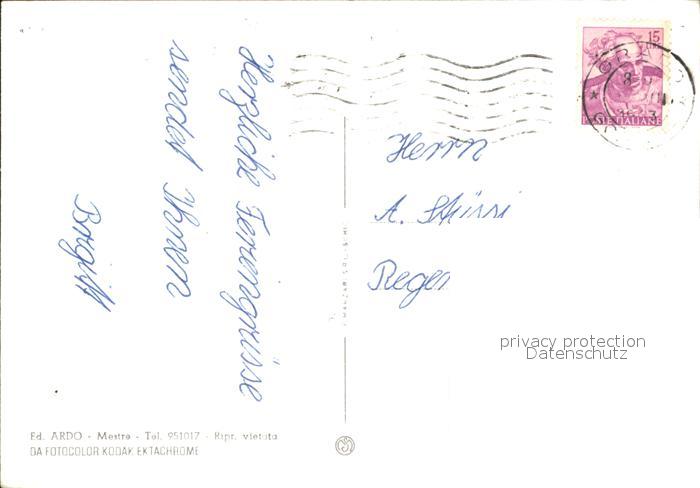 Herzliche Feriengrüsse
sendet Ihnen
Birgitt
Herrn
A. Stüssi
15
POSTE ITALIANE
GRADO
privacy protection
Datenschutz
Ed. ARDO - Mestre - Tel. 951017 - Ripr. vietata
DA FOTOCOLOR KODAK EKTACHROME